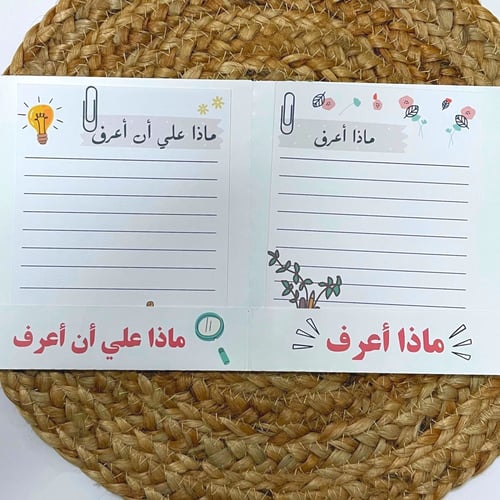 ماذا أعرف
ماذا علي أن أعرف
ماذا أعرف
ماذا علي أن أعرف